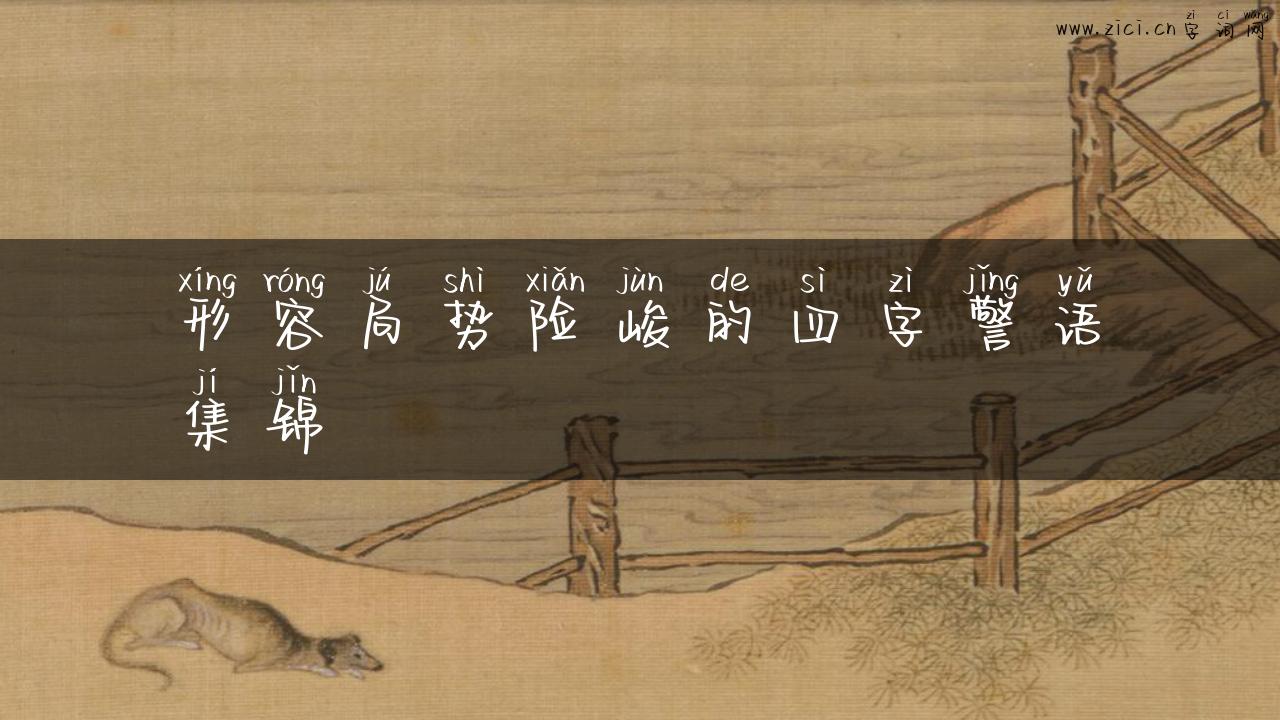 zì cí wǎng
www.zici.cn字词网
xíng róng jú shì xiǎn jùn de sì zì jǐng yǔ
形容局势险峻的四字警语
jí jǐn
集锦